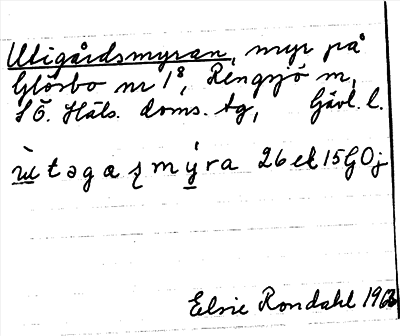 Utigårdsmyran, myr på
Glösbo nr 1⁸, Rengsjö sn,
SÖ. Häls. doms. tg, Gävl. l.
26 ek 15 G0j
Elsie Rondahl